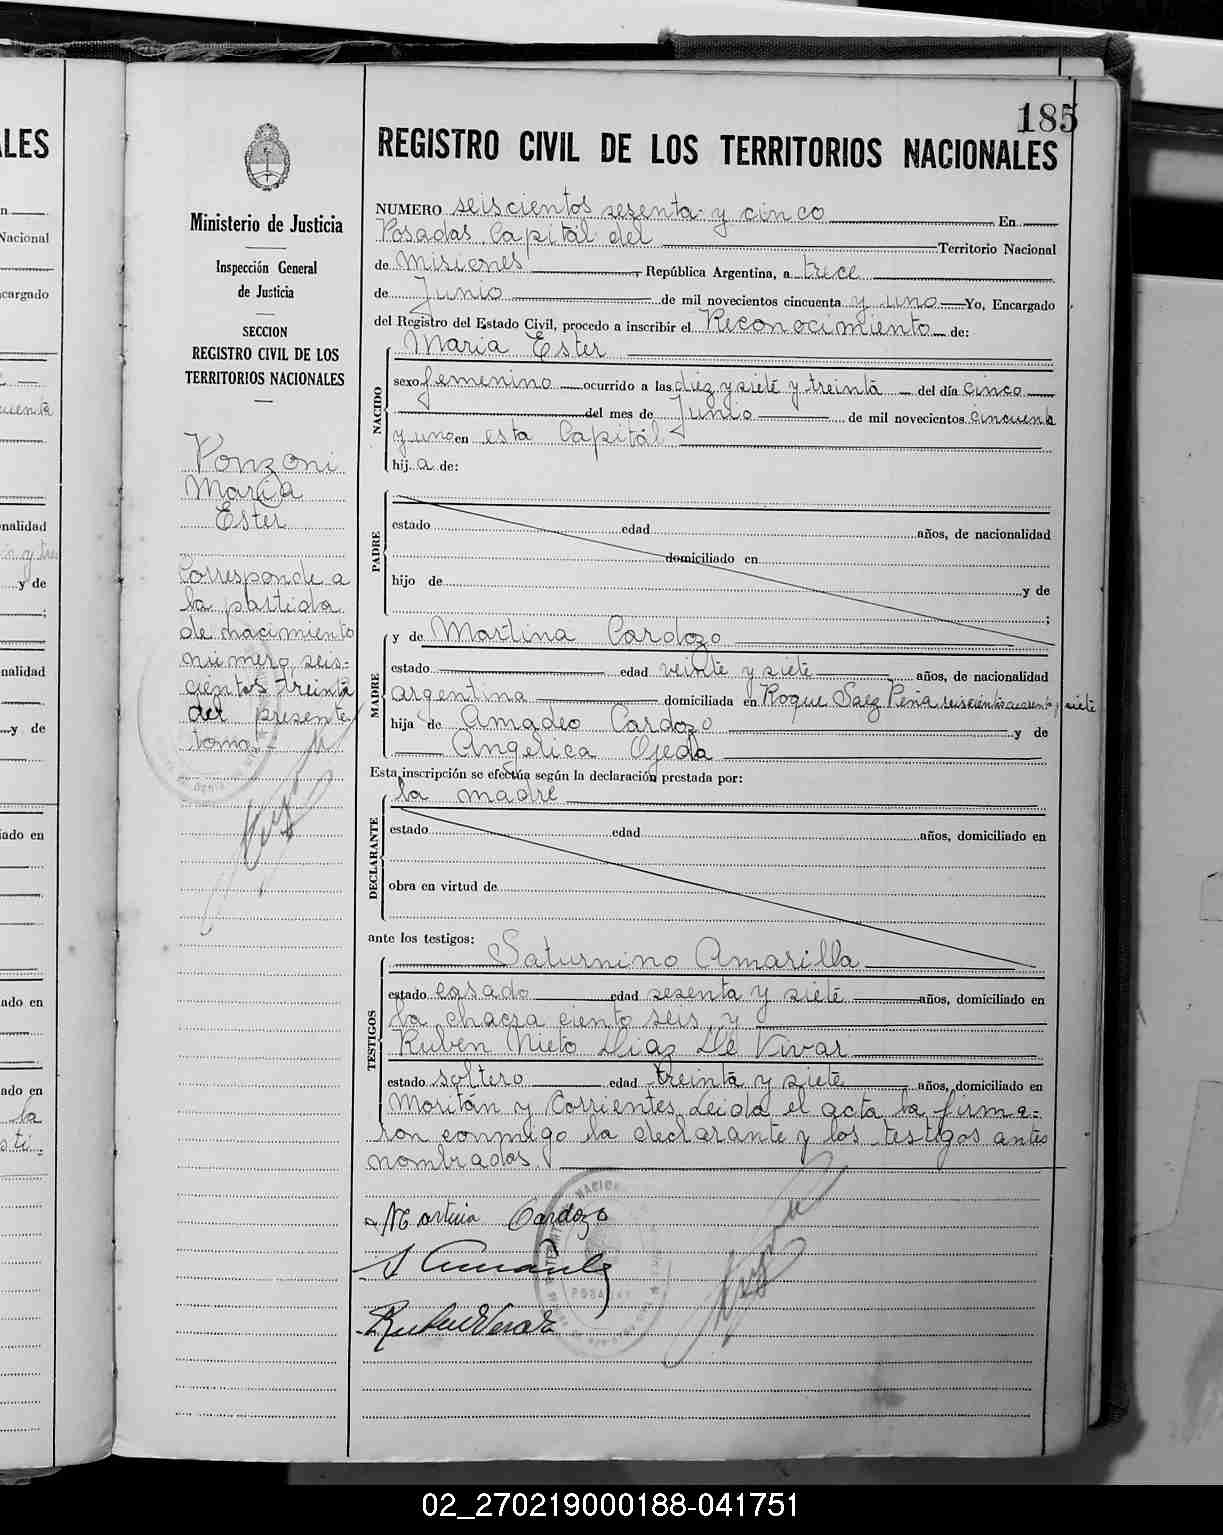 185
REGISTRO CIVIL DE LOS TERRITORIOS NACIONALES
Ministerio de Justicia
Inspección General
de Justicia
SECCION
REGISTRO CIVIL DE LOS
TERRITORIOS NACIONALES
Ponzoni
Maria
Ester
Corresponde a
la partida
de nacimiento
número seis-
cientos treinta
del presente
tomo.-
NUMERO seiscientos sesenta y cinco En
Posadas Capital del Territorio Nacional
de Misiones, República Argentina, a trece
de Junio de mil novecientos cincuenta y uno Yo, Encargado
del Registro del Estado Civil, procedo a inscribir el Reconocimiento de:
NACIDO
Maria Ester
sexo femenino ocurrido a las diez y siete y treinta del día cinco
del mes de Junio de mil novecientos cincuenta
y uno en esta Capital
hija de:
PADRE
estado edad años, de nacionalidad
domiciliado en
hijo de y de
;
MADRE
y de Martina Cardozo
estado edad veinte y siete años, de nacionalidad
argentina domiciliada en Roque Saez Peña seiscientos cuarenta y siete
hija de Amadeo Cardozo y de
Angélica Ojeda
Esta inscripción se efectúa según la declaración prestada por:
la madre
DECLARANTE
estado edad años, domiciliado en
obra en virtud de
ante los testigos:
TESTIGOS
Saturnino Amarilla
estado casado edad sesenta y siete años, domiciliado en
la chacra ciento seis, y
Rubén Nieto Diaz De Vivar
estado soltero edad treinta y siete años, domiciliado en
Moritán y Corrientes. Leida el acta la firma-
ron conmigo la declarante y los testigos antes
nombrados
Martina Cardozo
POSADAS
ALES
Nacional
ncargado
nalidad
y de
;
nalidad
y de
iado en
ado en
ado en
la
02_270219000188-041751